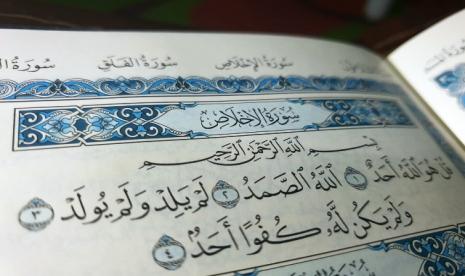 سُورَةُ الإِخْلَاصِ سُورَةُ الفَلَقِ سُورَةُ
سُورَةُ الإِخْلَاصِ
بِسْمِ اللَّهِ الرَّحْمَٰنِ الرَّحِيمِ
قُلْ هُوَ اللَّهُ أَحَدٌ ١ اللَّهُ الصَّمَدُ ٢ لَمْ يَلِدْ وَلَمْ يُولَدْ ٣
وَلَمْ يَكُن لَّهُ كُفُوًا أَحَدٌ ٤